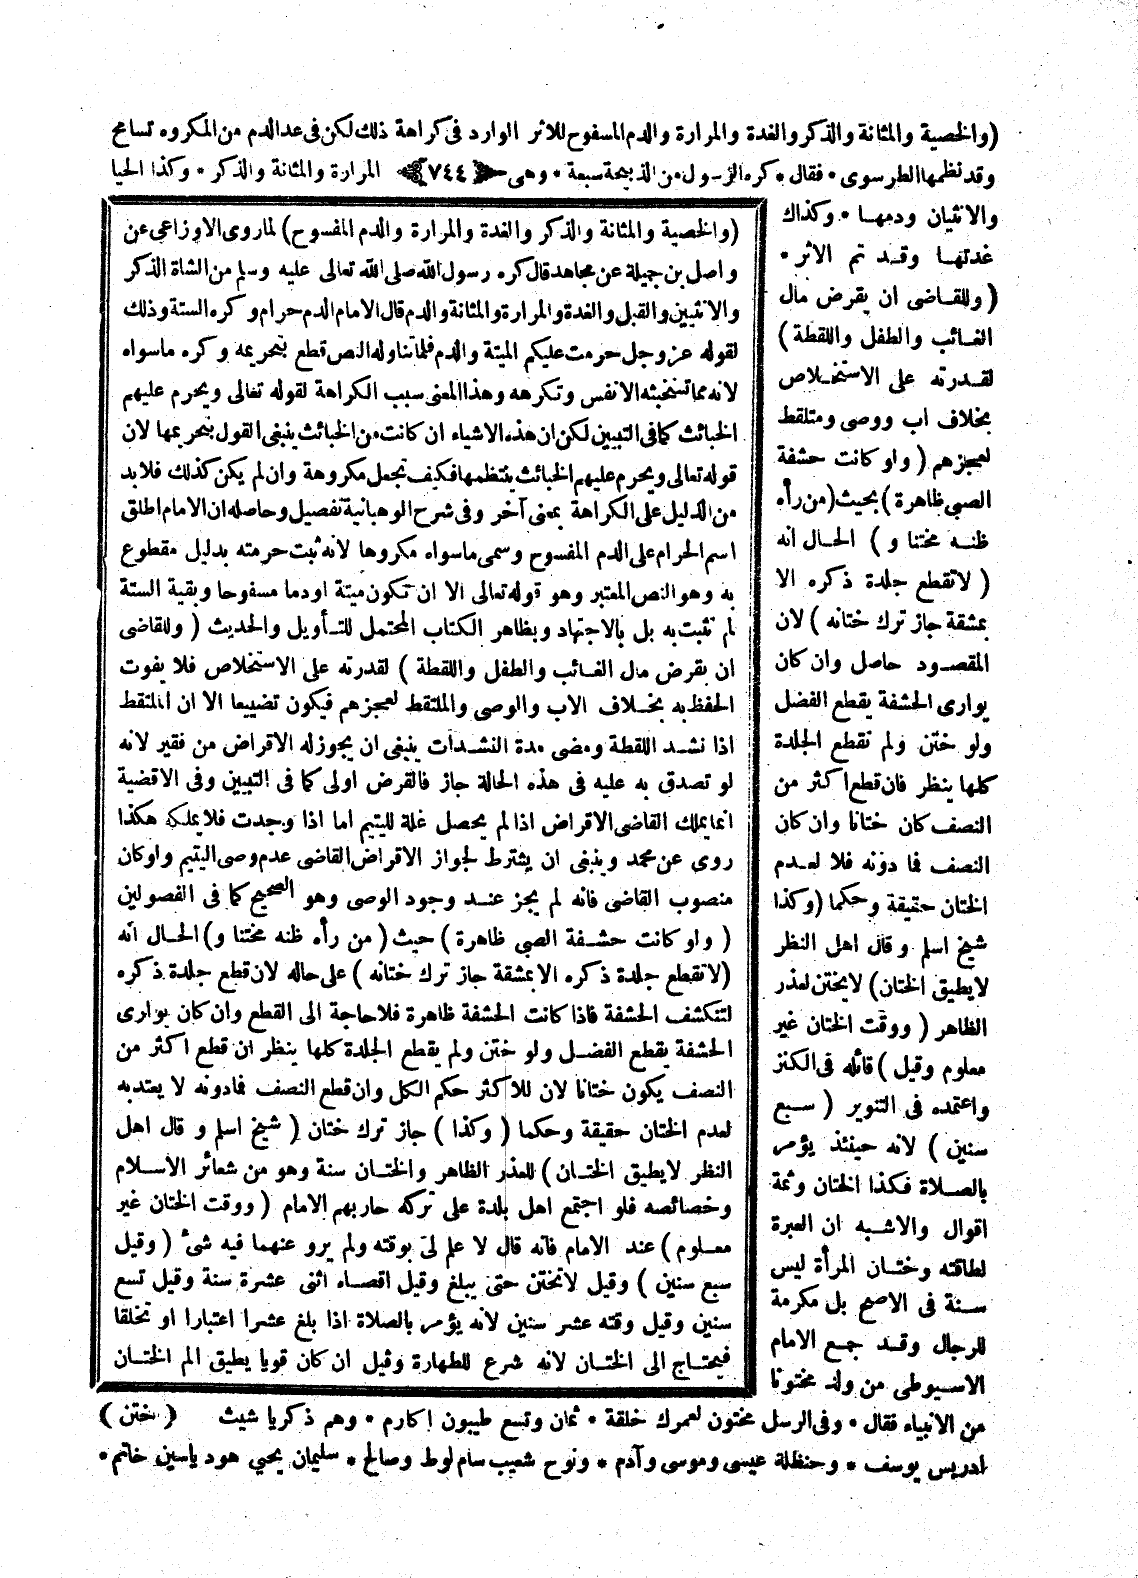 (والخصية والمثانة والذكر والغدة والمرارة والدم المسفوح للاثر الوارد فى كراهة ذلك لكن فى عد الدم من المكروه تسامح
وقد نظمها الطرسوى * فقال * كره الرسول من الذبيحة سبعة * وهى ﴿٧٤٤﴾ المرارة والمثانة والذكر * وكذا الحيا
والانثيان ودمها * وكذاك
غدتها وقد تم الاثر *
(وللقاضى ان يقرض مال
الغائب والطفل واللقطة)
لقدرته على الاستخلاص
بخلاف اب ووصى وملتقط
لعجزهم (ولو كانت حشفة
الصبى ظاهرة) بحيث (من رأه
ظنه مختنا و) الحال انه
(لا تقطع جلدة ذكره الا
بمشقة جاز ترك ختانه) لان
المقصود حاصل وان كان
يوارى الحشفة يقطع الفضل
ولو ختن ولم تقطع الجلدة
كلها ينظر فان قطع اكثر من
النصف كان ختانا وان كان
النصف فما دونه فلا لعدم
الختان حقيقة وحكما (وكذا
شيخ اسلم وقال اهل النظر
لا يطيق الختان) لا يختن لعذر
الظاهر (ووقت الختان غير
معلوم وقيل) قائله فى الكنز
واعتمده فى التنوير (سبع
سنين) لانه حينئذ يؤمر
بالصلاة فكذا الختان وثمة
اقوال والاشبه ان العبرة
لطاقته وختان المرأة ليس
سنة فى الاصح بل مكرمة
للرجال وقد جمع الامام
الاسيوطى من ولد مختونا
من الانبياء فقال * وفى الرسل مختون لعمرك خلقة * ثمان وتسع طيبون اكارم * وهم ذكريا شيث
ادريس يوسف * وحنظلة عيسى وموسى وآدم * ونوح شعيب سام لوط وصالح * سليمان يحيى هود ياسين خاتم *
(والخصية والمثانة والذكر والغدة والمرارة والدم المفسوح) لما روى الاوزاعى عن
واصل بن جميلة عن مجاهد قال كره رسول الله صلى الله تعالى عليه وسلم من الشاة الذكر
والانثيين والقبل والغدة والمرارة والمثانة والدم قال الامام الدم حرام وكره الستة وذلك
لقوله عز وجل حرمت عليكم الميتة والدم فلما تناوله النص قطع بتحريمه وكره ماسواه
لانه مما تستخبثه الانفس وتكرهه وهذا المعنى سبب الكراهة لقوله تعالى ويحرم عليهم
الخبائث كما فى التبيين لكن ان هذه الاشياء ان كانت من الخبائث ينبغى القول بتحريمها لان
قوله تعالى ويحرم عليهم الخبائث ينتظمها فكيف تجعل مكروهة وان لم يكن كذلك فلا بد
من الدليل على الكراهة بمعنى آخر وفى شرح الوهبانية تفصيل وحاصله ان الامام اطلق
اسم الحرام على الدم المفسوح وسمى ماسواه مكروها لانه ثبت حرمته بدليل مقطوع
به وهو النص المعتبر وهو قوله تعالى الا ان تكون ميتة او دما مسفوحا وبقية الستة
لم تثبت به بل بالاجتهاد وبظاهر الكتاب المحتمل للتأويل والحديث (وللقاضى
ان يقرض مال الغائب والطفل واللقطة) لقدرته على الاستخلاص فلا يفوت
الحفظ به بخلاف الاب والوصى والملتقط لعجزهم فيكون تضييعا الا ان الملتقط
اذا نشد اللقطة ومضى مدة النشدات ينبغى ان يجوز له الاقراض من فقير لانه
لو تصدق به عليه فى هذه الحالة جاز فالقرض اولى كما فى التبيين وفى الاقضية
انما يملك القاضى الاقراض اذا لم يحصل غلة لليتيم اما اذا وجدت فلا يملكه هكذا
روى عن محمد وينبغى ان يشترط لجواز الاقراض القاضى عدم وصى اليتيم ولو كان
منصوب القاضى فانه لم يجز عند وجود الوصى وهو الصحيح كما فى الفصولين
(ولو كانت حشفة الصبى ظاهرة) حيث (من رأه ظنه مختنا و) الحال انه
(لا تقطع جلدة ذكره الا بمشقة جاز ترك ختانه) على حاله لان قطع جلدة ذكره
لتنكشف الحشفة فاذا كانت الحشفة ظاهرة فلا حاجة الى القطع وان كان يوارى
الحشفة يقطع الفضل ولو ختن ولم يقطع الجلدة كلها ينظر ان قطع اكثر من
النصف يكون ختانا لان للاكثر حكم الكل وان قطع النصف فمادونه لا يعتد به
لعدم الختان حقيقة وحكما (وكذا) جاز ترك ختان (شيخ اسلم وقال اهل
النظر لا يطيق الختان) للعذر الظاهر والختان سنة وهو من شعائر الاسلام
وخصائصه فلو اجتمع اهل بلدة على تركه حاربهم الامام (ووقت الختان غير
معلوم) عند الامام فانه قال لا علم لى بوقته ولم يرو عنهما فيه شئ (وقيل
سبع سنين) وقيل لا تختن حتى يبلغ وقيل اقصاه اثنى عشرة سنة وقيل تسع
سنين وقيل وقته عشر سنين لانه يؤمر بالصلاة اذا بلغ عشرا اعتبارا او تخلقا
فيحتاج الى الختان لانه شرع للطهارة وقيل ان كان قويا يطيق الم الختان
(ختن)